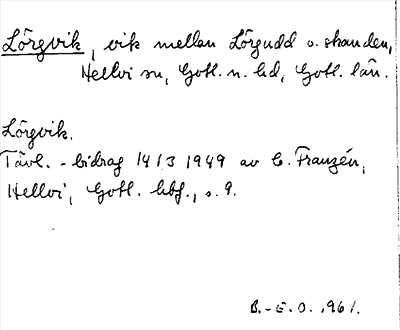 Lörgvik, vik mellan Lörgudd o. stranden,
Hellvi sn, Gotl. n. hd, Gotl. län.
Lörgvik.
Tävl.-bidrag 14/3 1949 av C. Franzén,
Hellvi, Gotl. hbf., s. 9.
B.-E.O. 1961.